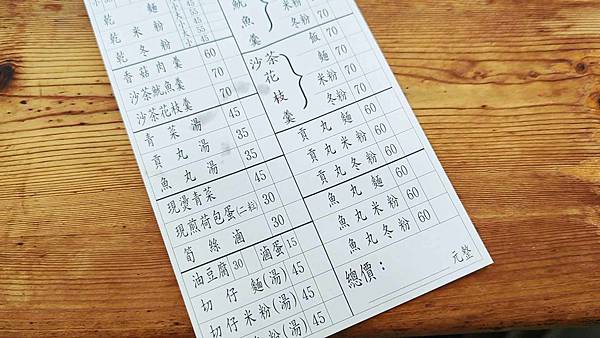 乾麵
乾米粉
乾冬粉
香菇肉羹 60
沙茶魷魚羹 70
沙茶花枝羹 70
青菜湯 45
貢丸湯 35
魚丸湯 35
現燙青菜 45
現煎荷包蛋(二粒) 30
筍絲滷 30
油豆腐 30 滷蛋 15
切仔麵(湯) 45
切仔米粉(湯) 45
粉(湯) 45
魷魚羹
米粉 70
冬粉 70
沙茶花枝羹
飯 70
麵 70
米粉 70
冬粉 70
貢丸麵 60
貢丸米粉 60
貢丸冬粉 60
魚丸麵 60
魚丸米粉 60
魚丸冬粉 60
總價： 元整